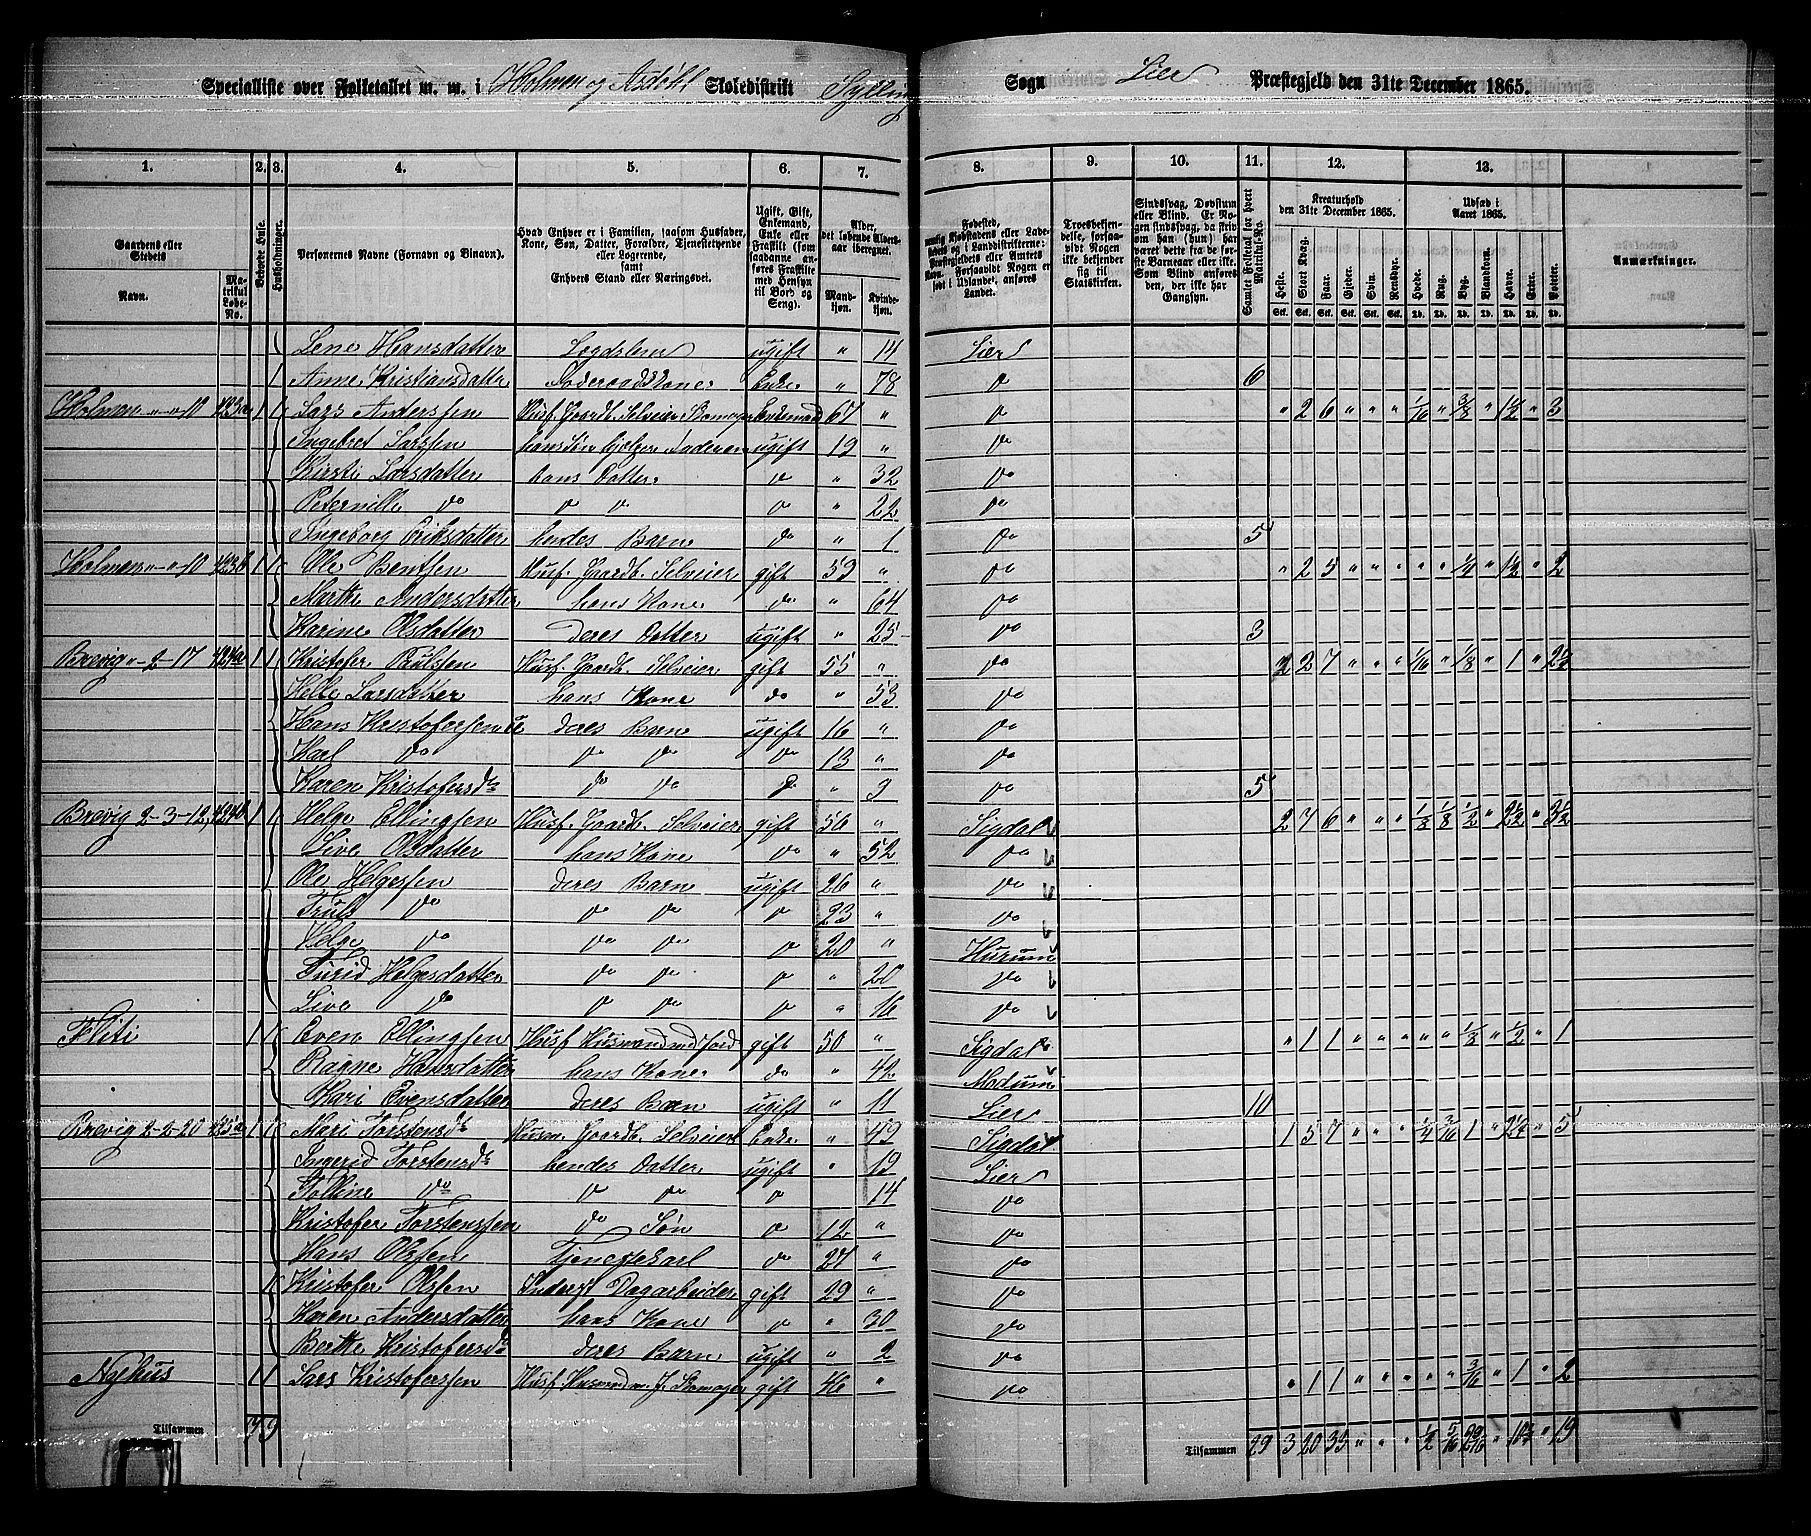 Specialliste over Folketallet m. m. i Holmen og Asdøhl Skoledistrikt Sylling Sogn Lier Præstegjeld den 31te December 1865.
1. 2. 3. 4. 5. 6. 7. 8. 9. 10. 11. 12. 13.
Gaardens eller Stedets Navn. Matrikul Løbe-No. Beboede Huse. Husholdninger. Personernes Navne (Fornavn og Binavn). Hvad Enhver er i Familien, (saasom Husfader, Kone, Søn, Datter, Forældre, Tjenestetyende eller Logerende, samt Enhvers Stand eller Næringsvei. Ugift, Gift, Enkemand, Enke eller Fraskilt (saadanne anføres Fraskilte med Hensyn til Bord og Seng). Alder, det løbende Aldersaar iberegnet. Mandkjøn. Kvindekjøn.
Troesbekjendelse, forsaavidt Nogen ikke bekjender sig til Statskirken. Sindssvag, Døvstum eller Blind. Samlet Folketal for hvert Matrikul-No. Kreaturhold den 31te December 1865. Udsæd i Aaret 1865. Anmærkninger.
Heste. Stort Kvæg. Faar. Gjeder. Svin. Rensdyr. Hvede. Rug. Byg. Blandkorn. Havre. Erter. Poteter.
Lene Hansdatter Lægdslem ugift " 14 Lier
1 Anne Kristiansdatter Føderaadskone Enke " 78 do 6
Holmen " " 10 423a 1 1 Lars Anderssen Husf. Gaardb. Selveier Skomager Enkemand 67 " do " 2 6 " " " 1/16 " 3/8 " 1 1/2 " 3
Ingebret Larssen hans Søn hjelper Faderen ugift 19 " do
Kirsti Larsdatter hans Datter do " 32 do
Peternille do do do do " 22 do
Ingeborg Eriksdatter hendes Barn do " 1 do 5
Holmen " " 10 423b 1 1 Ole Bentsen Husf. Gaardb. Selveier gift 59 " do " 2 5 " " " " " 1/4 " 1 1/2 " 2
Marthe Andersdatter hans Kone do " 64 do
Karine Olsdatter deres Datter ugift " 25 do 3
Brevig " 2 17 424a 1 1 Kristofer Pålsen Husf. Gaardb. Selveier gift 55 " do 2 2 7 " " " 1/16 " 1/8 " 1 " 2 1/2
Helle Larsdatter hans Kone do " 53 do
Hans Kristofersen deres Barn ugift 16 " do
Karl do do do do 13 " do
Karen Kristofersd. do do do " 9 do 5
Brevig 2-3-12 424b 1 1 Helge Ellingsen Husf. Gaardb. Selveier gift 56 " Sigdal 2 7 6 " " " 1/8 1/8 1/2 " 2 1/2 " 3 1/2
Live Olsdatter hans Kone do " 52 do
Ole Helgessen deres Barn ugift 26 " do
Truls do do do do 23 " do
Helge do do do do 20 " Hurum
Turid Helgesdatter do do do " 20 do
Live do do do do " 16 do
Fliti 1 1 Even Ellingsen Husf. Husmand med Jord gift 50 " Sigdal " 1 1 " " " " " 1/8 " 1/2 " 1
Ragne Hansdatter hans Kone do " 42 Modum
Mari Evensdatter deres Barn ugift " 11 Lier 10
Brevig 2-2-20 425a 1 1 Mari Torstensd. Husm. Gaardb. Selveier Enke " 49 Sigdal 1 5 7 " " " 1/4 3/16 1 " 2 1/2 " 5
Ingerid Torstensd. hendes Datter ugift " 19 Lier
Torine do do do do " 14 do
Kristofer Torstenssen do Søn do 12 " do
Hans Olssen Tjenestekarl do 24 " do
1 Kristofer Olssen Inderst Dagarbeider gift 29 " do
Karen Andersdatter hans Kone do " 30 do
Berthe Kristofersd. deres Barn ugift " 2 do
Nyhus 1 1 Lars Kristoferssen Husf. Husmand m. J. Skomager gift 46 " do " 1 1 " " " " " 3/16 " 1 " 2
Tilsammen 7 9 Tilsammen 29 3 20 35 " " " 1/2 5/16 " " 19